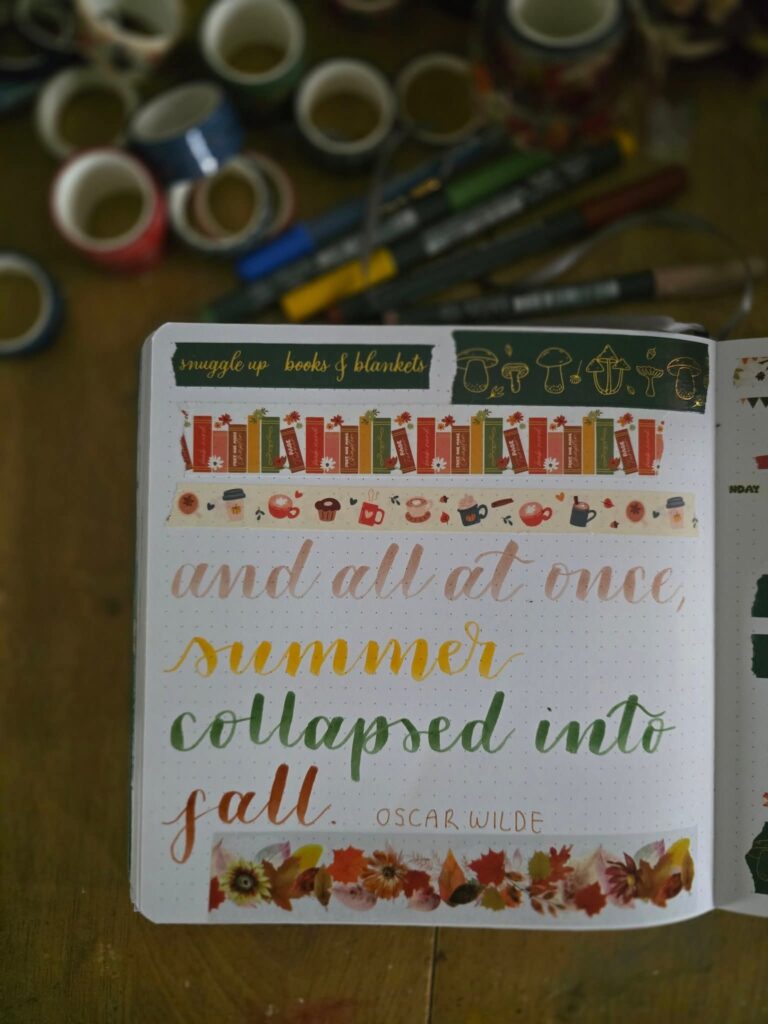 snuggle up books & blankets
and all at once,
summer
collapsed into
fall.
OSCAR WILDE
NDAY